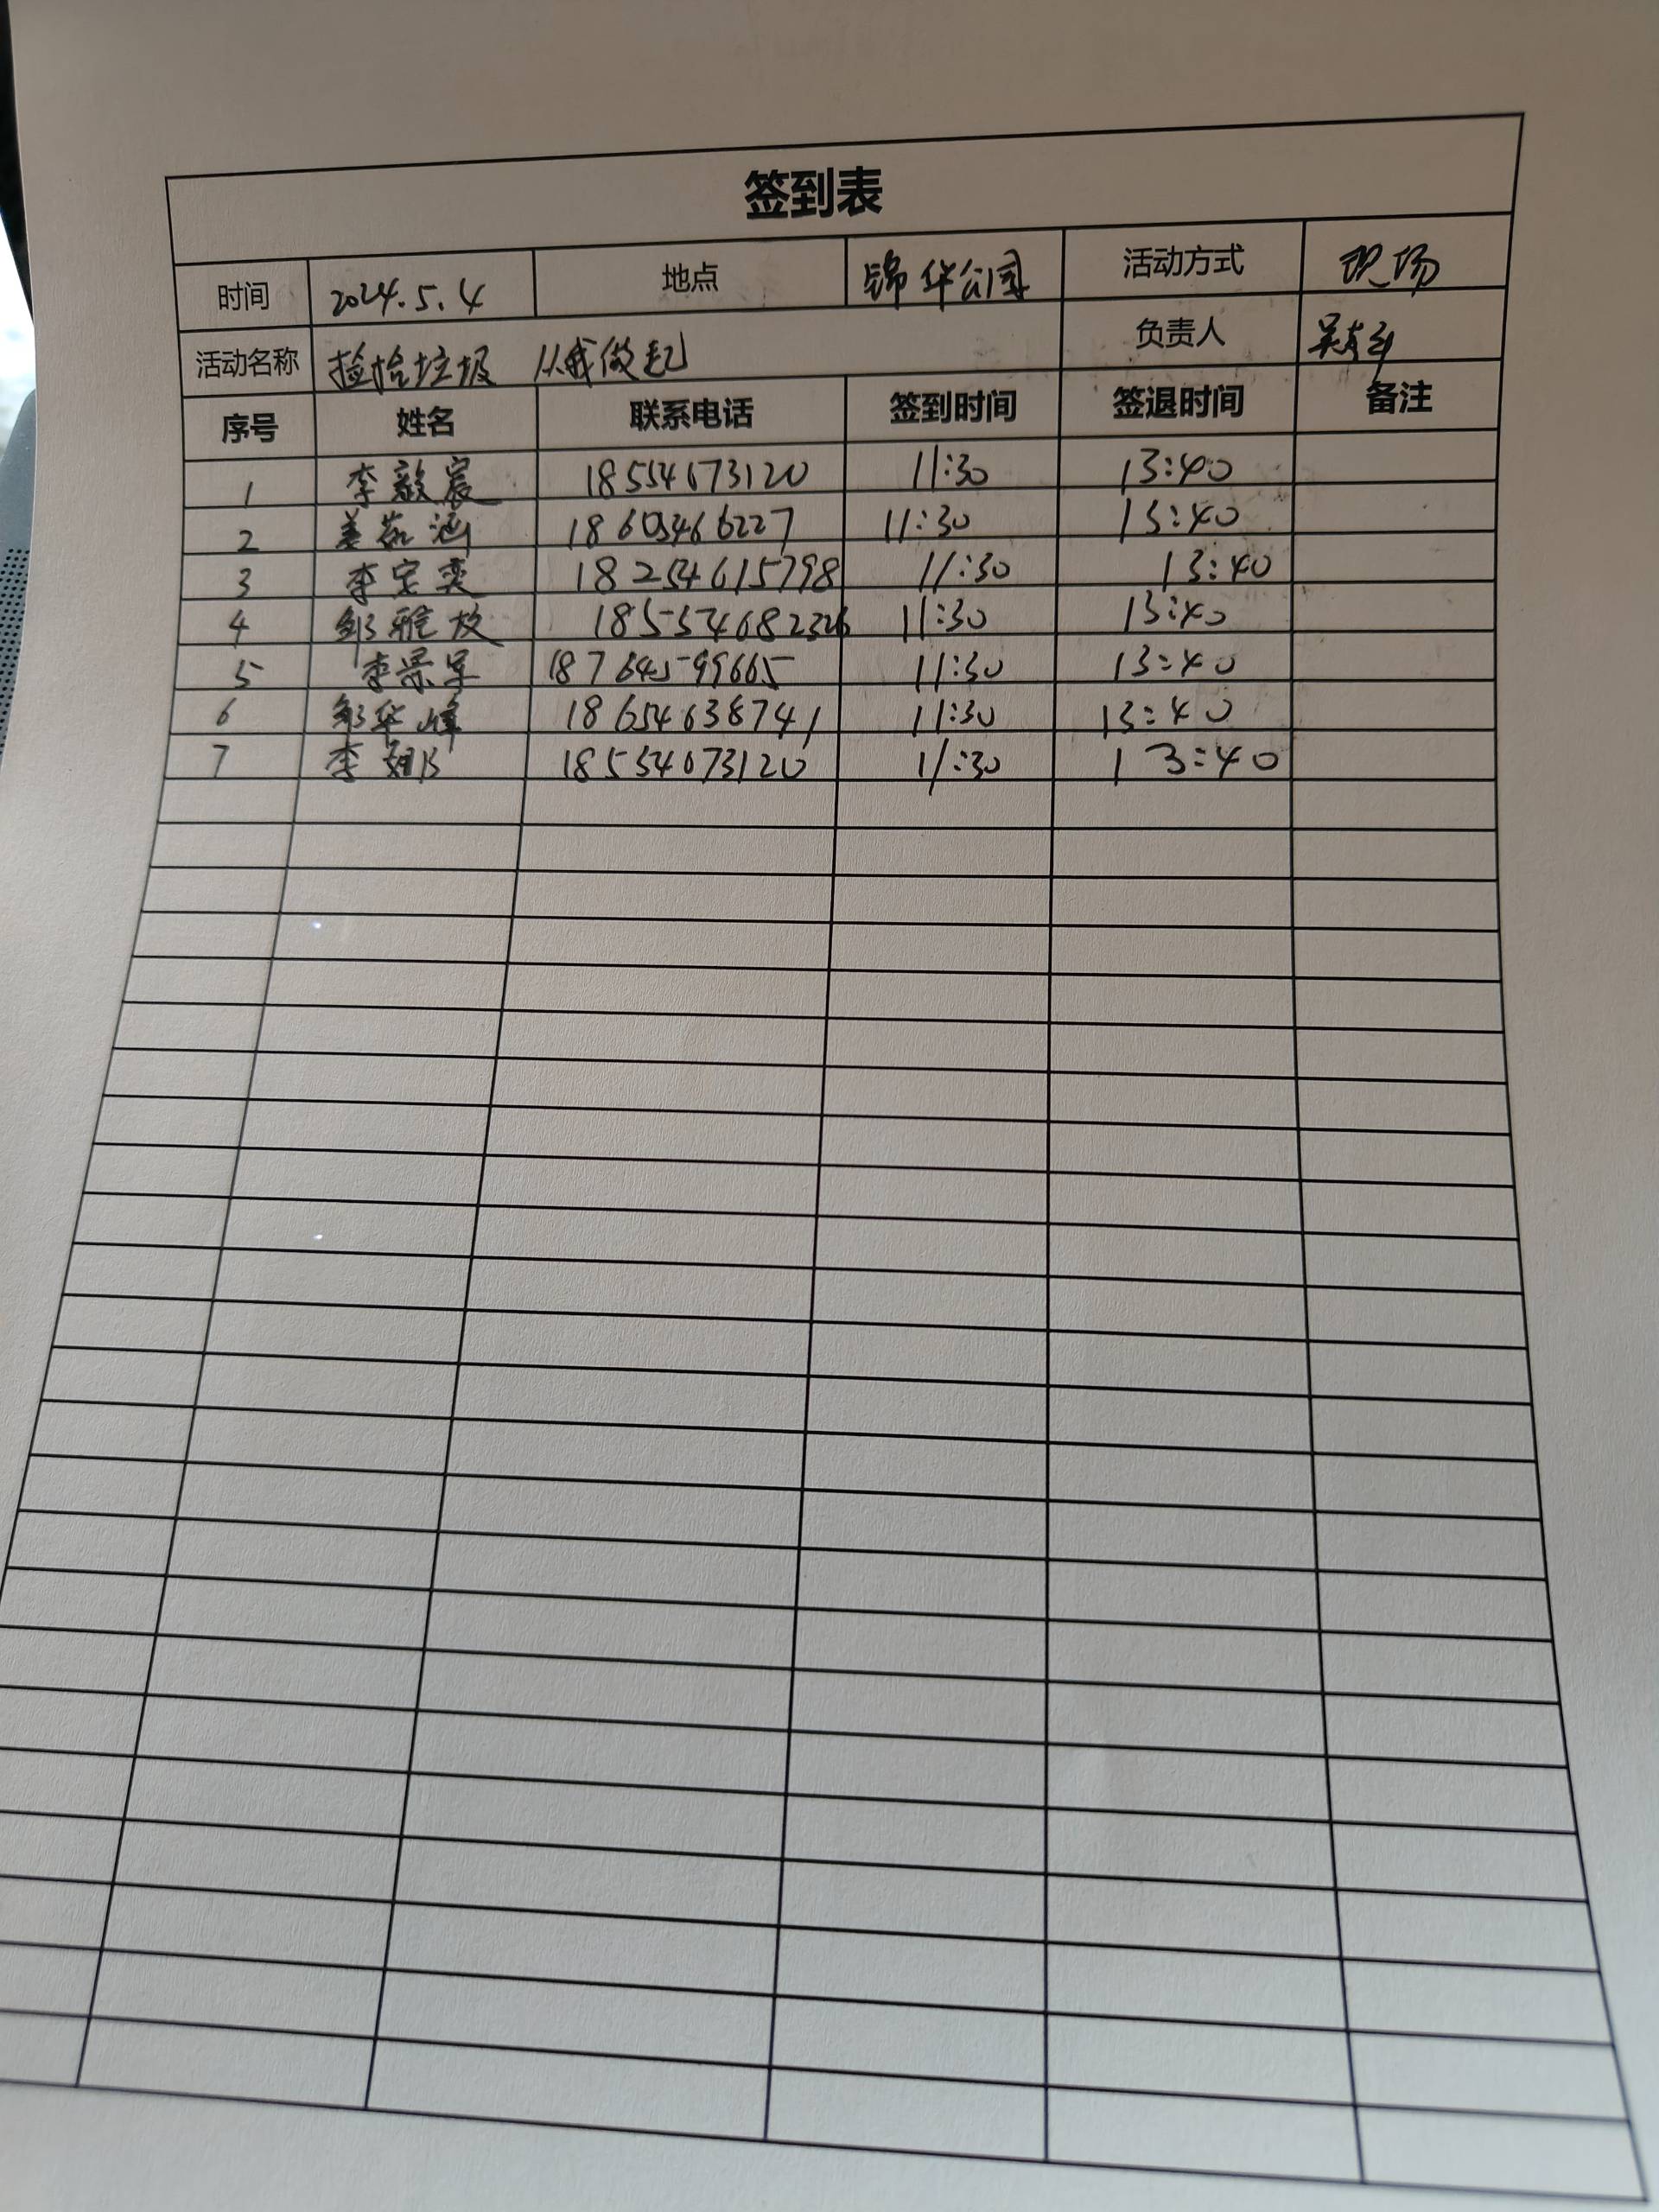 签到表
时间 2024.5.4 地点 锦华公园 活动方式 现场
活动名称 捡拾垃圾 从我做起 负责人
序号 姓名 联系电话 签到时间 签退时间 备注
1 李毅宸 18554673120 11:30 13:40
2 姜茹涵 18603466227 11:30 13:40
3 李宗奕 18254615798 11:30 13:40
4 邹雅 11:30 13:40
5 李景军 18764599665 11:30 13:40
6 邹华峰 18654638741 11:30 13:40
7 李 18554673120 11:30 13:40